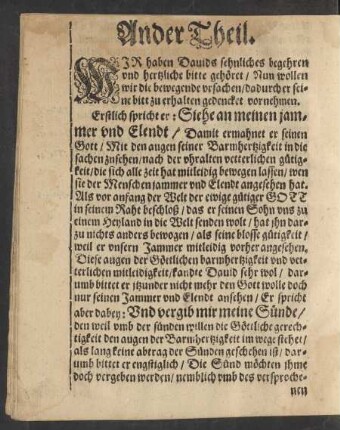 Ander Theil.
WIR haben Dauids sehnliches begehren
vnd hertzliche bitte gehöret / Nun wollen
wir die bewegende vrsachen / dadurch er sei-
ne bitt zu erhalten gedencket vornehmen.
Erstlich spricht er: Siehe an meinen jam-
mer vnd Elendt / Damit ermahnet er seinen
Gott / Mit den augen seiner Barmhertzigkeit in die
sachen zusehen / nach der vhralten vetterlichen gütig-
keit / die sich alle zeit hat mitleidig bewegen lassen / wen
sie der Menschen jammer vnd Elendt angesehen hat.
Als vor anfang der Welt der ewige gütiger GOTT
in seinem Raht beschloß / das er seinen Sohn vns zu
einem Heyland in die Welt senden wolt / hat jhn dar-
zu nichts anders bewogen / als seine blosse gütigkeit /
weil er vnsern Jammer mitleidig vorher angesehen.
Diese augen der Götlichen barmhertzigkeit vnd vet-
terlichen mitleidigkeit / kandte Dauid sehr wol / dar-
umb bittet er itzunder nicht mehr den Gott wolle doch
nur seinen Jammer vnd Elendt ansehen / Er spricht
aber dabey: Vnd vergib mir meine Sünde /
den weil vmb der sünden willen die Götliche gerech-
tigkeit den augen der Barmhertzigkeit im wege stehet /
als lang keine abtrag der Sünden geschehen ist / dar-
umb bittet er engstiglich / Die Sünd möchten ihme
doch vergeben werden / nemblich vmb des versproche-
nen